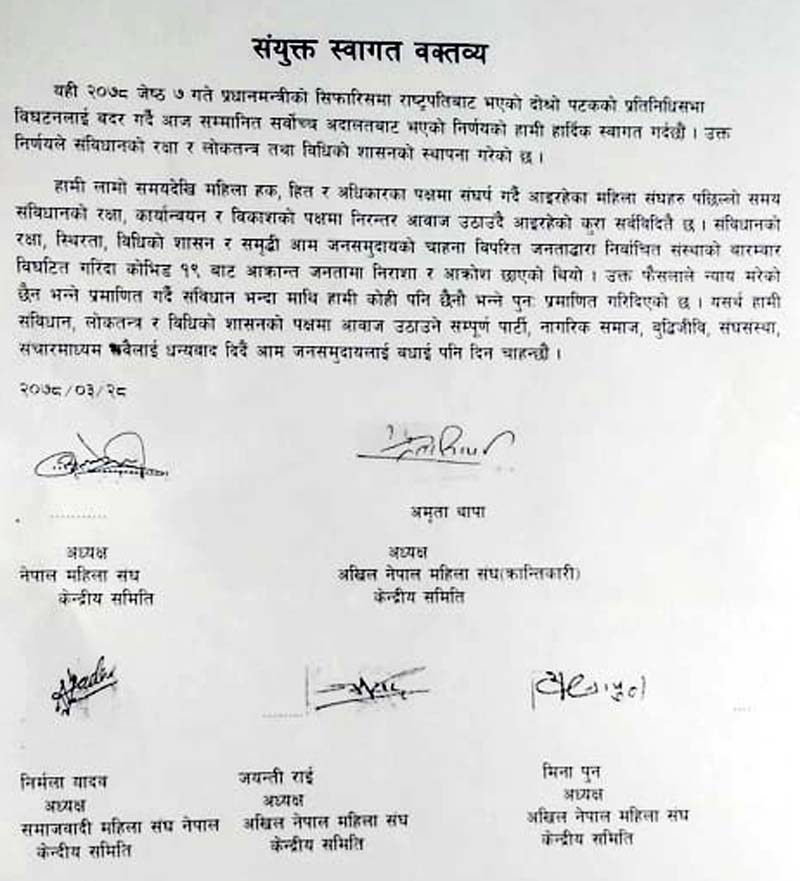 संयुक्त स्वागत वक्तव्य
यही २०७८ जेष्ठ ७ गते प्रधानमन्त्रीको सिफारिसमा राष्ट्रपतिबाट भएको दोश्रो पटकको प्रतिनिधिसभा
विघटनलाई बदर गर्दै आज सम्मानित सर्वोच्च अदालतबाट भएको निर्णयको हामी हार्दिक स्वागत गर्दछौं । उक्त
निर्णयले संविधानको रक्षा र लोकतन्त्र तथा विधिको शासनको स्थापना गरेको छ ।
हामी लामो समयदेखि महिला हक, हित र अधिकारका पक्षमा संघर्ष गर्दै आइरहेका महिला संघहरु पछिल्लो समय
संविधानको रक्षा, कार्यान्वयन र विकाशको पक्षमा निरन्तर आवाज उठाउदै आइरहेको कुरा सर्वविदितै छ । संविधानको
रक्षा, स्थिरता, विधिको शासन र समृद्धी आम जनसमुदायको चाहना विपरित जनताद्वारा निर्वाचित संस्थाको बारम्वार
विघटित गरिंदा कोभिड १९ बाट आक्रान्त जनतामा निराशा र आक्रोश छाएको थियो । उक्त फैसलाले न्याय मरेको
छैन भन्ने प्रमाणित गर्दै संविधान भन्दा माथि हामी कोही पनि छैनौ भन्ने पुन: प्रमाणित गरिदिएको छ । यसर्थ हामी
संविधान, लोकतन्त्र र विधिको शासनको पक्षमा आवाज उठाउने सम्पूर्ण पार्टी, नागरिक समाज, बुद्धिजीवि, संघसंस्था,
संचारमाध्यम धन्यवाद दिदैं आम जनसमुदायलाई बधाई पनि दिन चाहन्छौं ।
२०७८/०३/२८
अमृता थापा
अध्यक्ष अध्यक्ष
नेपाल महिला संघ अखिल नेपाल महिला संघ(क्रान्तिकारी)
केन्द्रीय समिति केन्द्रीय समिति
निर्मला यादव जयन्ती राई मिना पुन
अध्यक्ष अध्यक्ष अध्यक्ष
समाजवादी महिला संघ नेपाल अखिल नेपाल महिला संघ अखिल नेपाल महिला संघ
केन्दीय समिति केन्द्रीय समिति केन्द्रीय समिति